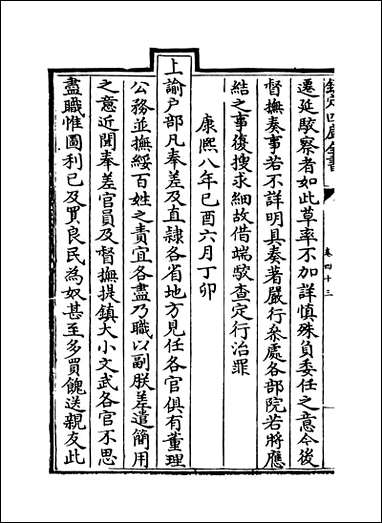 欽定四庫全書
卷四十三
遷延駁察者如此草率不加詳慎殊負委任之意今後
督撫奏事若不詳明具奏者嚴行叅處各部院若將應
結之事後搜求細故借端駁查定行治罪
康熙八年己酉六月丁卯
上諭户部凡奉差及直隷各省地方見任各官俱有董理
公務並撫綏百姓之責宜各盡乃職以副朕差遣簡用
之意近聞奉差官員及督撫提鎮大小文武各官不思
盡職惟圖利己及買良民為奴甚至多買餽送親友此